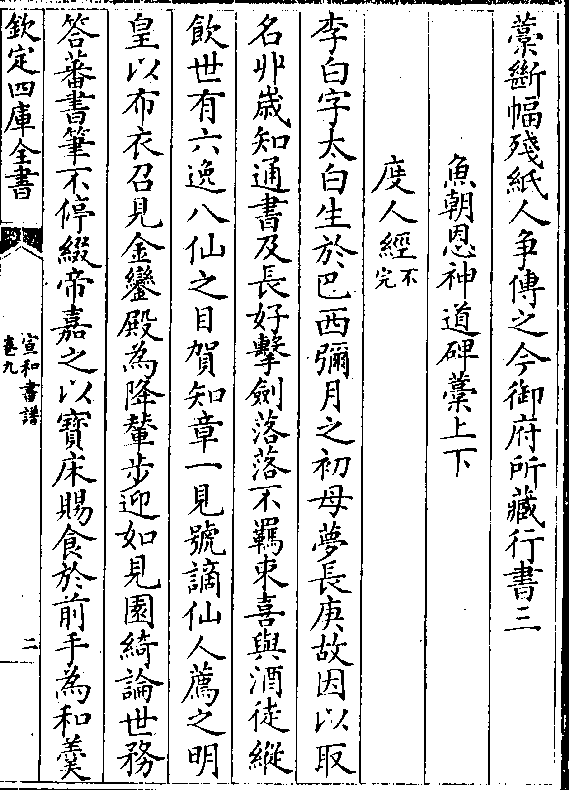 藁斷幅殘紙人争傳之今御府所藏行書三
魚朝恩神道碑藁上下
度人經不完
李白字太白生於巴西彌月之初母夢長庚故因以取
名丱歳知通書及長好擊劍落落不羈束喜與酒徒縱
飲世有六逸八仙之目賀知章一見號謫仙人薦之明
皇以布衣召見金鑾殿為降輦步迎如見園綺論世務
答蕃書筆不停綴帝嘉之以寶床賜食於前手為和羮
欽定四庫全書
宣和書譜
卷九
二